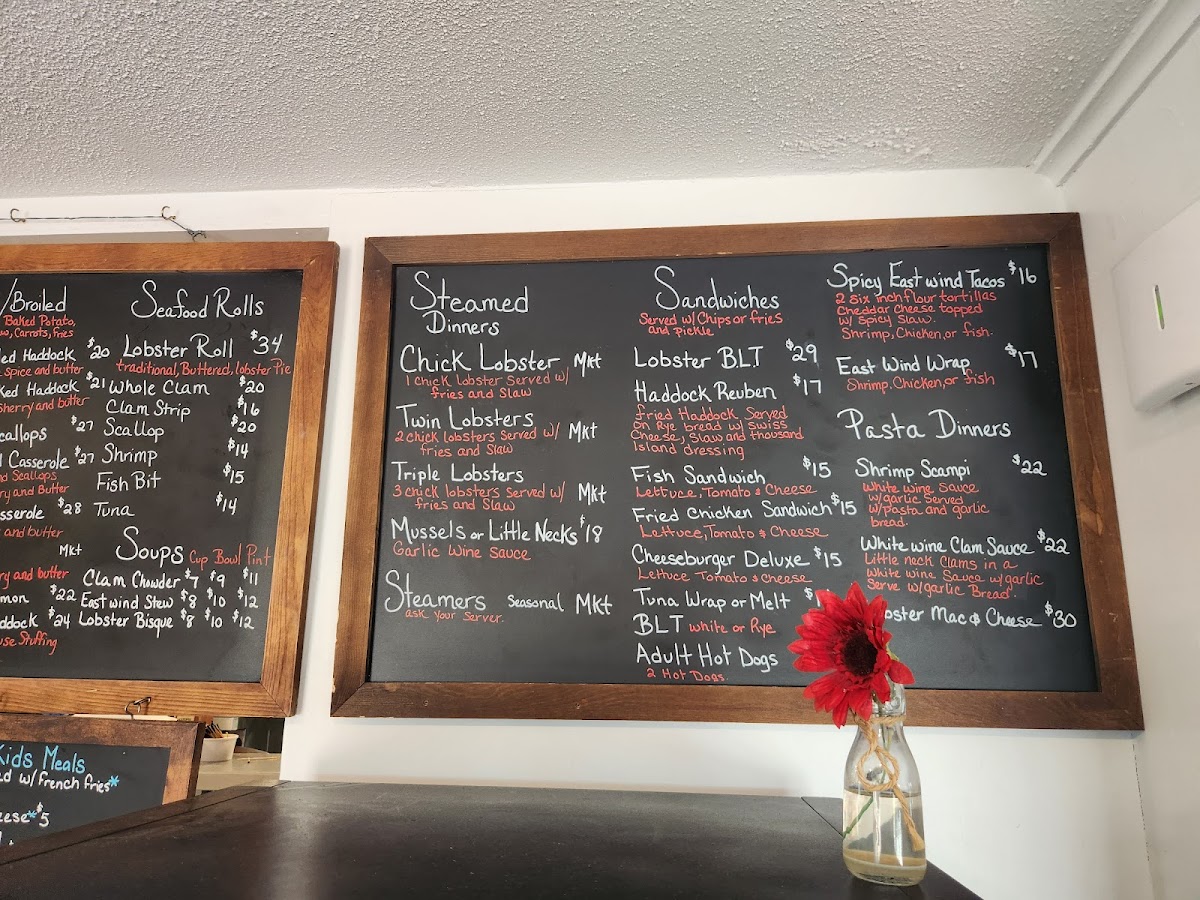 /Broiled
Baked Potato,
Carrots, Fries
Haddock $20
Spice and butter
Haddock $21
Sherry and butter
$27
Casserole $27
Scallops
and Butter
$28
and butter
Mkt
and butter
$22
$24
Stuffing
Seafood Rolls
Lobster Roll $34
traditional, Buttered, lobster Pie
Whole Clam $20
Clam Strip $16
Scallop $20
Shrimp $14
Fish Bit $15
Tuna $14
Soups Cup Bowl Pint
Clam Chowder $7 $9 $11
East wind Stew $8 $10 $12
Lobster Bisque $8 $10 $12
Kids Meals
w/french fries*
$5
Steamed
Dinners
Chick Lobster Mkt
1 chick Lobster Served w/
fries and Slaw
Twin Lobsters
2 chick lobsters Served w/ Mkt
fries and Slaw
Triple Lobsters
3 chick lobsters Served w/ Mkt
fries and Slaw
Mussels or Little Necks $18
Garlic Wine Sauce
Steamers Seasonal Mkt
ask your Server.
Sandwiches
Served w/Chips or fries
and pickle
Lobster B.L.T $29
Haddock Reuben $17
fried Haddock Served
on Rye bread w/ Swiss
Cheese, Slaw and thousand
Island dressing
Fish Sandwich $15
Lettuce, Tomato & Cheese
Fried Chicken Sandwich $15
Lettuce, Tomato & Cheese
Cheeseburger Deluxe $15
Lettuce Tomato & Cheese
Tuna Wrap or Melt
BLT white or Rye
Adult Hot Dogs
2 Hot Dogs.
Spicy East wind Tacos $16
2 six inch flour tortillas
Cheddar Cheese topped
w/ Spicy Slaw.
Shrimp, Chicken, or fish.
East Wind Wrap $17
Shrimp, Chicken, or fish
Pasta Dinners
Shrimp Scampi $22
White wine Sauce
w/garlic Served
w/pasta and garlic
bread.
White wine Clam Sauce $22
Little neck Clams in a
White wine Sauce w/garlic
Serve w/garlic Bread
Mac & Cheese $30